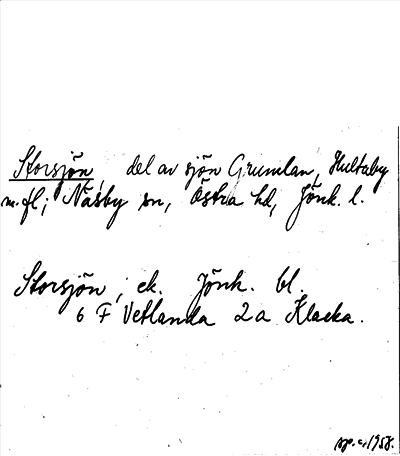 Storsjön, del av sjön Grumlan, Hultaby
m.fl; Näsby sn, Östra hd, Jönk. l.
Storsjön, ek. Jönk. bl.
6 F Vetlanda 2a Klacka.
1958.